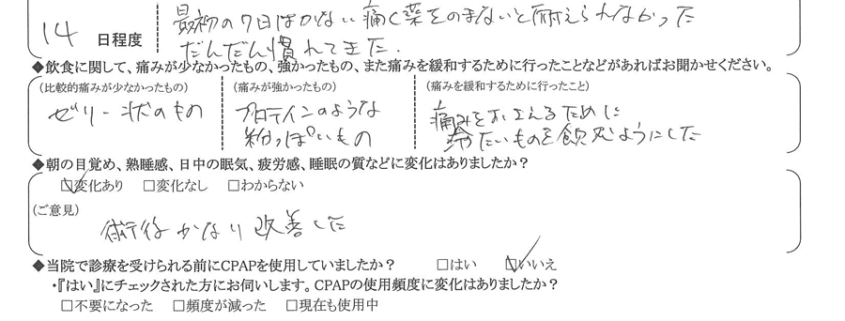 最初の7日はかなり痛く薬をのまないと耐えられなかった
14 日程度 だんだん慣れてきた.
◆飲食に関して、痛みが少なかったもの、強かったもの、また痛みを緩和するために行ったことなどがあればお聞かせください。
(比較的痛みが少なかったもの) (痛みが強かったもの) (痛みを緩和するために行ったこと)
ゼリー状のもの プロテインのような 痛みをおさえるために
粉っぽいもの 冷たいものを飲むようにした
◆朝の目覚め、熟睡感、日中の眠気、疲労感、睡眠の質などに変化はありましたか?
☑変化あり □変化なし □わからない
(ご意見)
術後かなり改善した
◆当院で診療を受けられる前にCPAPを使用していましたか? □はい ☑いいえ
・『はい』にチェックされた方にお伺いします。CPAPの使用頻度に変化はありましたか?
□不要になった □頻度が減った □現在も使用中